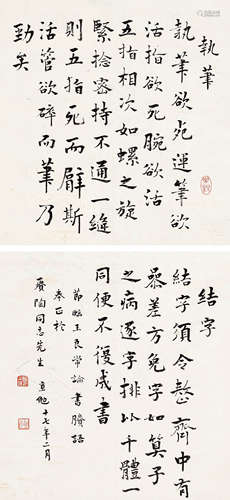 執筆
執筆欲死運筆欲
活指欲死腕欲活
五指相次如螺之旋
緊捻密持不通一縫
則五指死而臂斯
活管欲碎而筆乃
勁矣
結字
結字須令整齊中有
參差方免字如算子
之病逐字排比千體一
同便不復成書
節臨王良常論書賸語
奉正於
賡陶同志先生
十七年二月